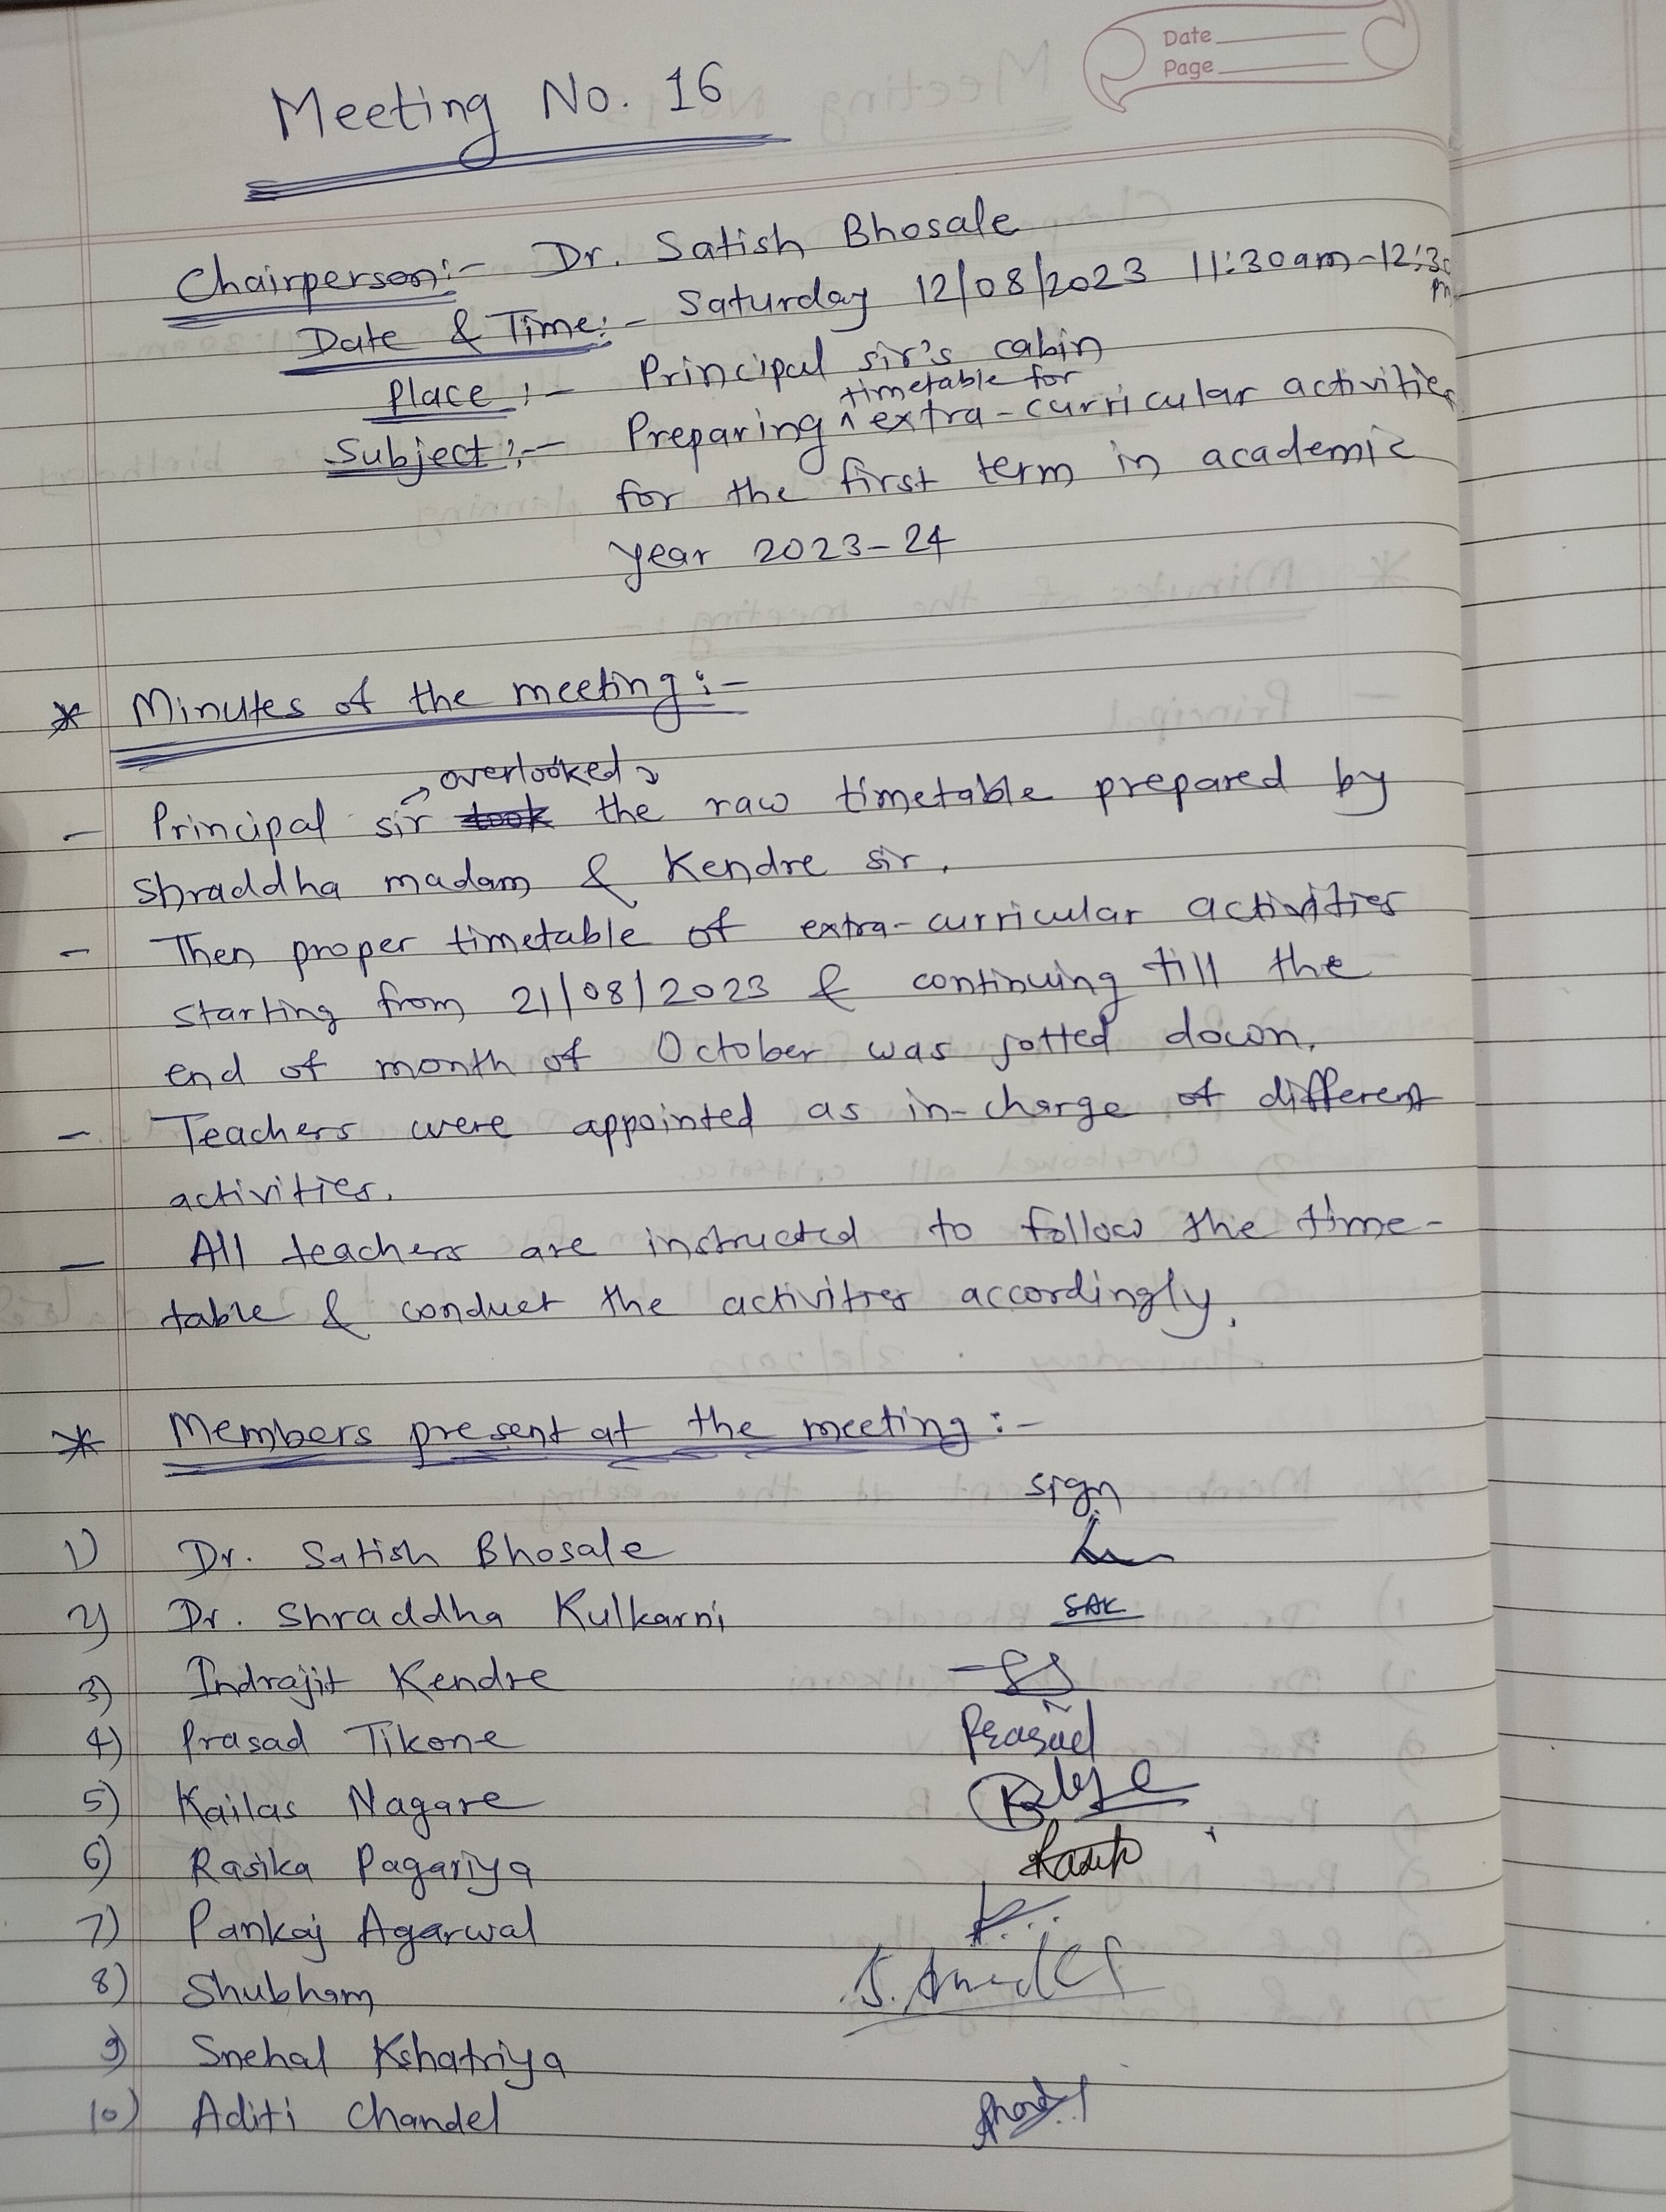 Date
Page
Meeting No. 16
Chairperson:- Dr. Satish Bhosale
Date & Time:- Saturday 12/08/2023 11:30am-12:30
pm
Place :- Principal sir's cabin
timetable for
Subject :- Preparing ^ extra-curricular activities
for the first term in academic
year 2023-24
* Minutes of the meeting :-
overlooked
- Principal sir took the raw timetable prepared by
Shraddha madam & Kendre sir.
- Then proper timetable of extra-curricular activities
starting from 21/08/2023 & continuing till the
end of month of October was jotted down.
- Teachers were appointed as in-charge of different
activities.
- All teachers are instructed to follow the time-
table & conduct the activities accordingly.
* Members present at the meeting :-
sign
1) Dr. Satish Bhosale
2) Dr. Shraddha Kulkarni SAK
3) Indrajit Kendre
4) Prasad Tikone Prasad
5) Kailas Nagare
6) Rasika Pagariya
7) Pankaj Agarwal
8) Shubham
9) Snehal Kshatriya
10) Aditi Chandel